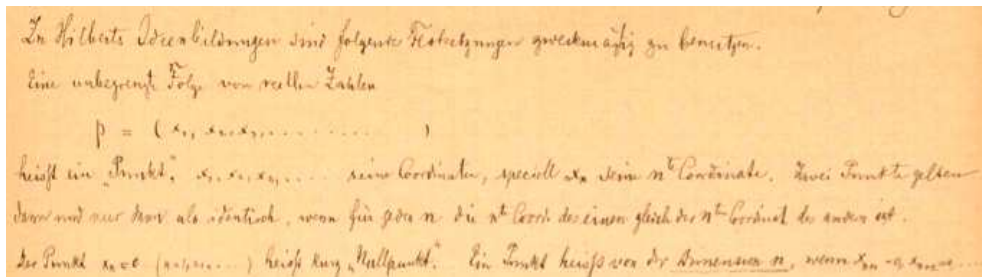 In Hilberts Ideenbildungen sind folgende Festsetzungen zweckmäßig zu benutzen.
Eine unbegrenzte Folge von reellen Zahlen
p = (x₁, x₂, x₃, . . . . . . . . . )
heißt ein „Punkt“, x₁, x₂, x₃, . . . . seine Coordinaten, speciell xₙ seine nᵗᵉ Coordinate. Zwei Punkte gelten
dann und nur dann als identisch, wenn für jedes n die nᵗᵉ Coord. des einen gleich der nᵗᵉⁿ Coordinate des andern ist.
Der Punkt xₙ = 0 (n = 1, 2, . . . ) heißt kurz „Nullpunkt“. Ein Punkt heißt von der Dimension n, wenn